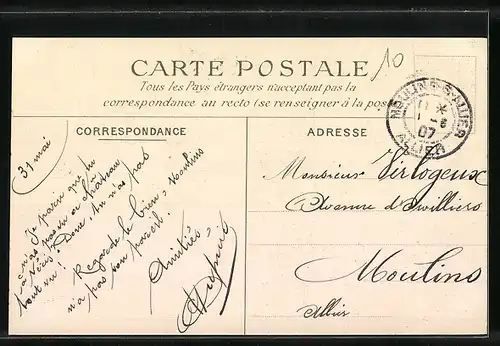 10
CARTE POSTALE
Tous les Pays étrangers n'acceptant pas la
correspondance au recto (se renseigner à la poste)
MOULINS-S-ALLIER
ALLIER
07
CORRESPONDANCE
ADRESSE
31 mai
Je parie que tu
n'as pas vu ce château
à Néris! Donc, tu n'as pas
tout vu!
Regarde le bien, Moulins
n'a pas son pareil!
Amitiés
Monsieur Verlogeux
Avenue d'Orvilliers
Moulins
Allier